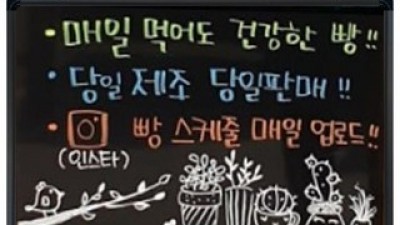 • 매일 먹어도 건강한 빵!!
• 당일 제조 당일판매!!
• 빵 스케줄 매일 업로드!!
(인스타)